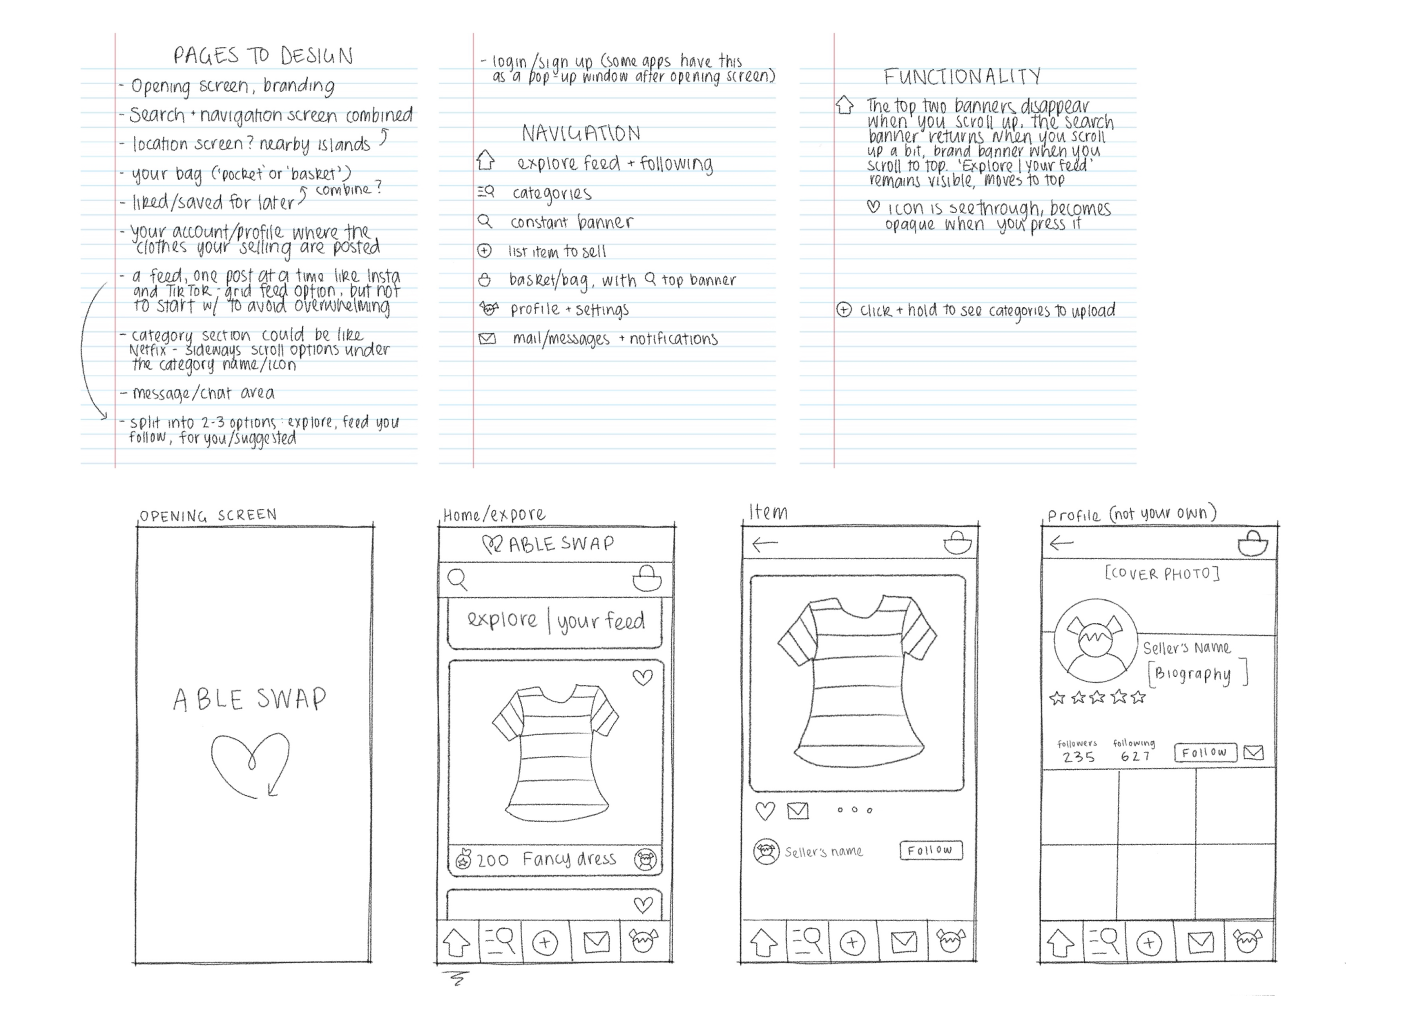 PAGES TO DESIGN
- Opening screen, branding
- Search + navigation screen combined
- location screen? nearby islands
- your bag ('pocket' or 'basket')
combine?
- liked/saved for later
- your account/profile where the
clothes your selling are posted
- a feed, one post at a time like Insta
and TikTok - grid feed option, but not
to start w/ to avoid overwhelming
- category section could be like
Netfix - sideways scroll options under
the category name/icon
- message/chat area
- split into 2-3 options: explore, feed you
follow, for you/suggested
- login/sign up (some apps have this
as a pop-up window after opening screen)
NAVIGATION
explore feed + following
categories
constant banner
list item to sell
basket/bag, with top banner
profile + settings
mail/messages + notifications
FUNCTIONALITY
The top two banners disappear
when you scroll up. the search
banner returns when you scroll
up a bit, brand banner when you
scroll to top. 'Explore | your feed'
remains visible, moves to top
icon is seethrough, becomes
opaque when you press it
click + hold to see categories to upload
OPENING SCREEN
ABLE SWAP
Home/expore
ABLE SWAP
explore | your feed
200 Fancy dress
Item
Seller's name
Follow
Profile (not your own)
[COVER PHOTO]
Seller's Name
[Biography]
followers following
235 627
Follow